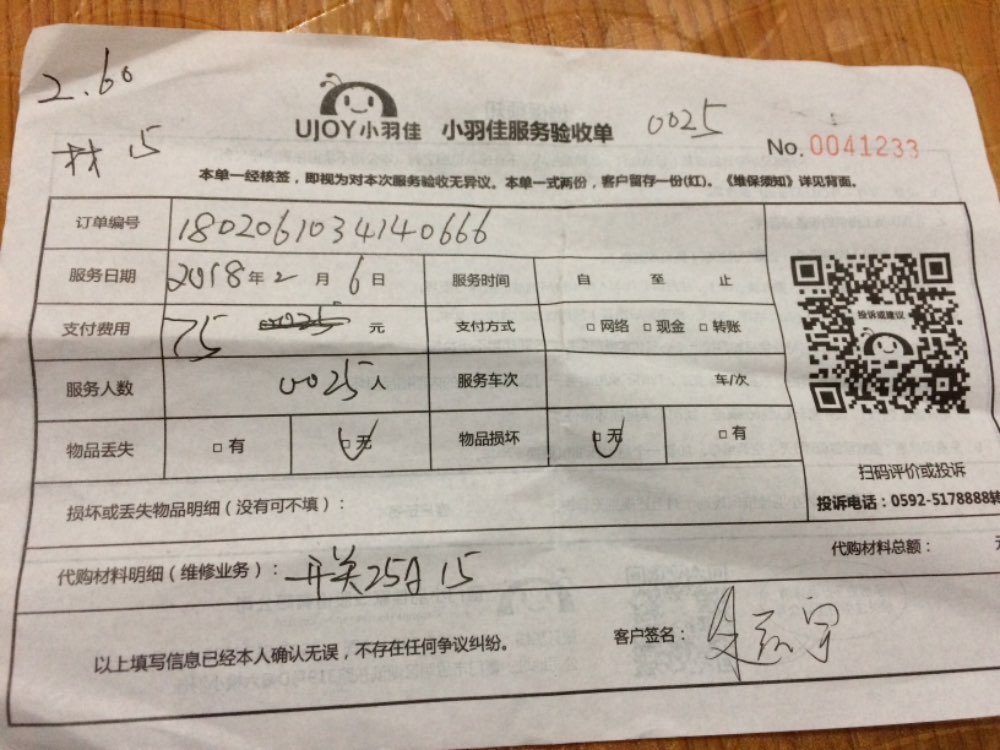 2.60
材 15
UJOY小羽佳 小羽佳服务验收单 0025
No. 0041233
本单一经核签，即视为对本次服务验收无异议。本单一式两份，客户留存一份(红)。《维保须知》详见背面。
订单编号 1802061034140666
服务日期 2018年2月6日 服务时间 自 至 止
支付费用 75 元 支付方式 □网络 □现金 □转账
投诉或建议
服务人数 0025人 服务车次 车/次
物品丢失 □有 □无 物品损坏 □无 □有
扫码评价或投诉
投诉电话：0592-5178888转
损坏或丢失物品明细（没有可不填）：
代购材料明细（维修业务）：开关25A 15 代购材料总额：
以上填写信息已经本人确认无误，不存在任何争议纠纷。 客户签名：